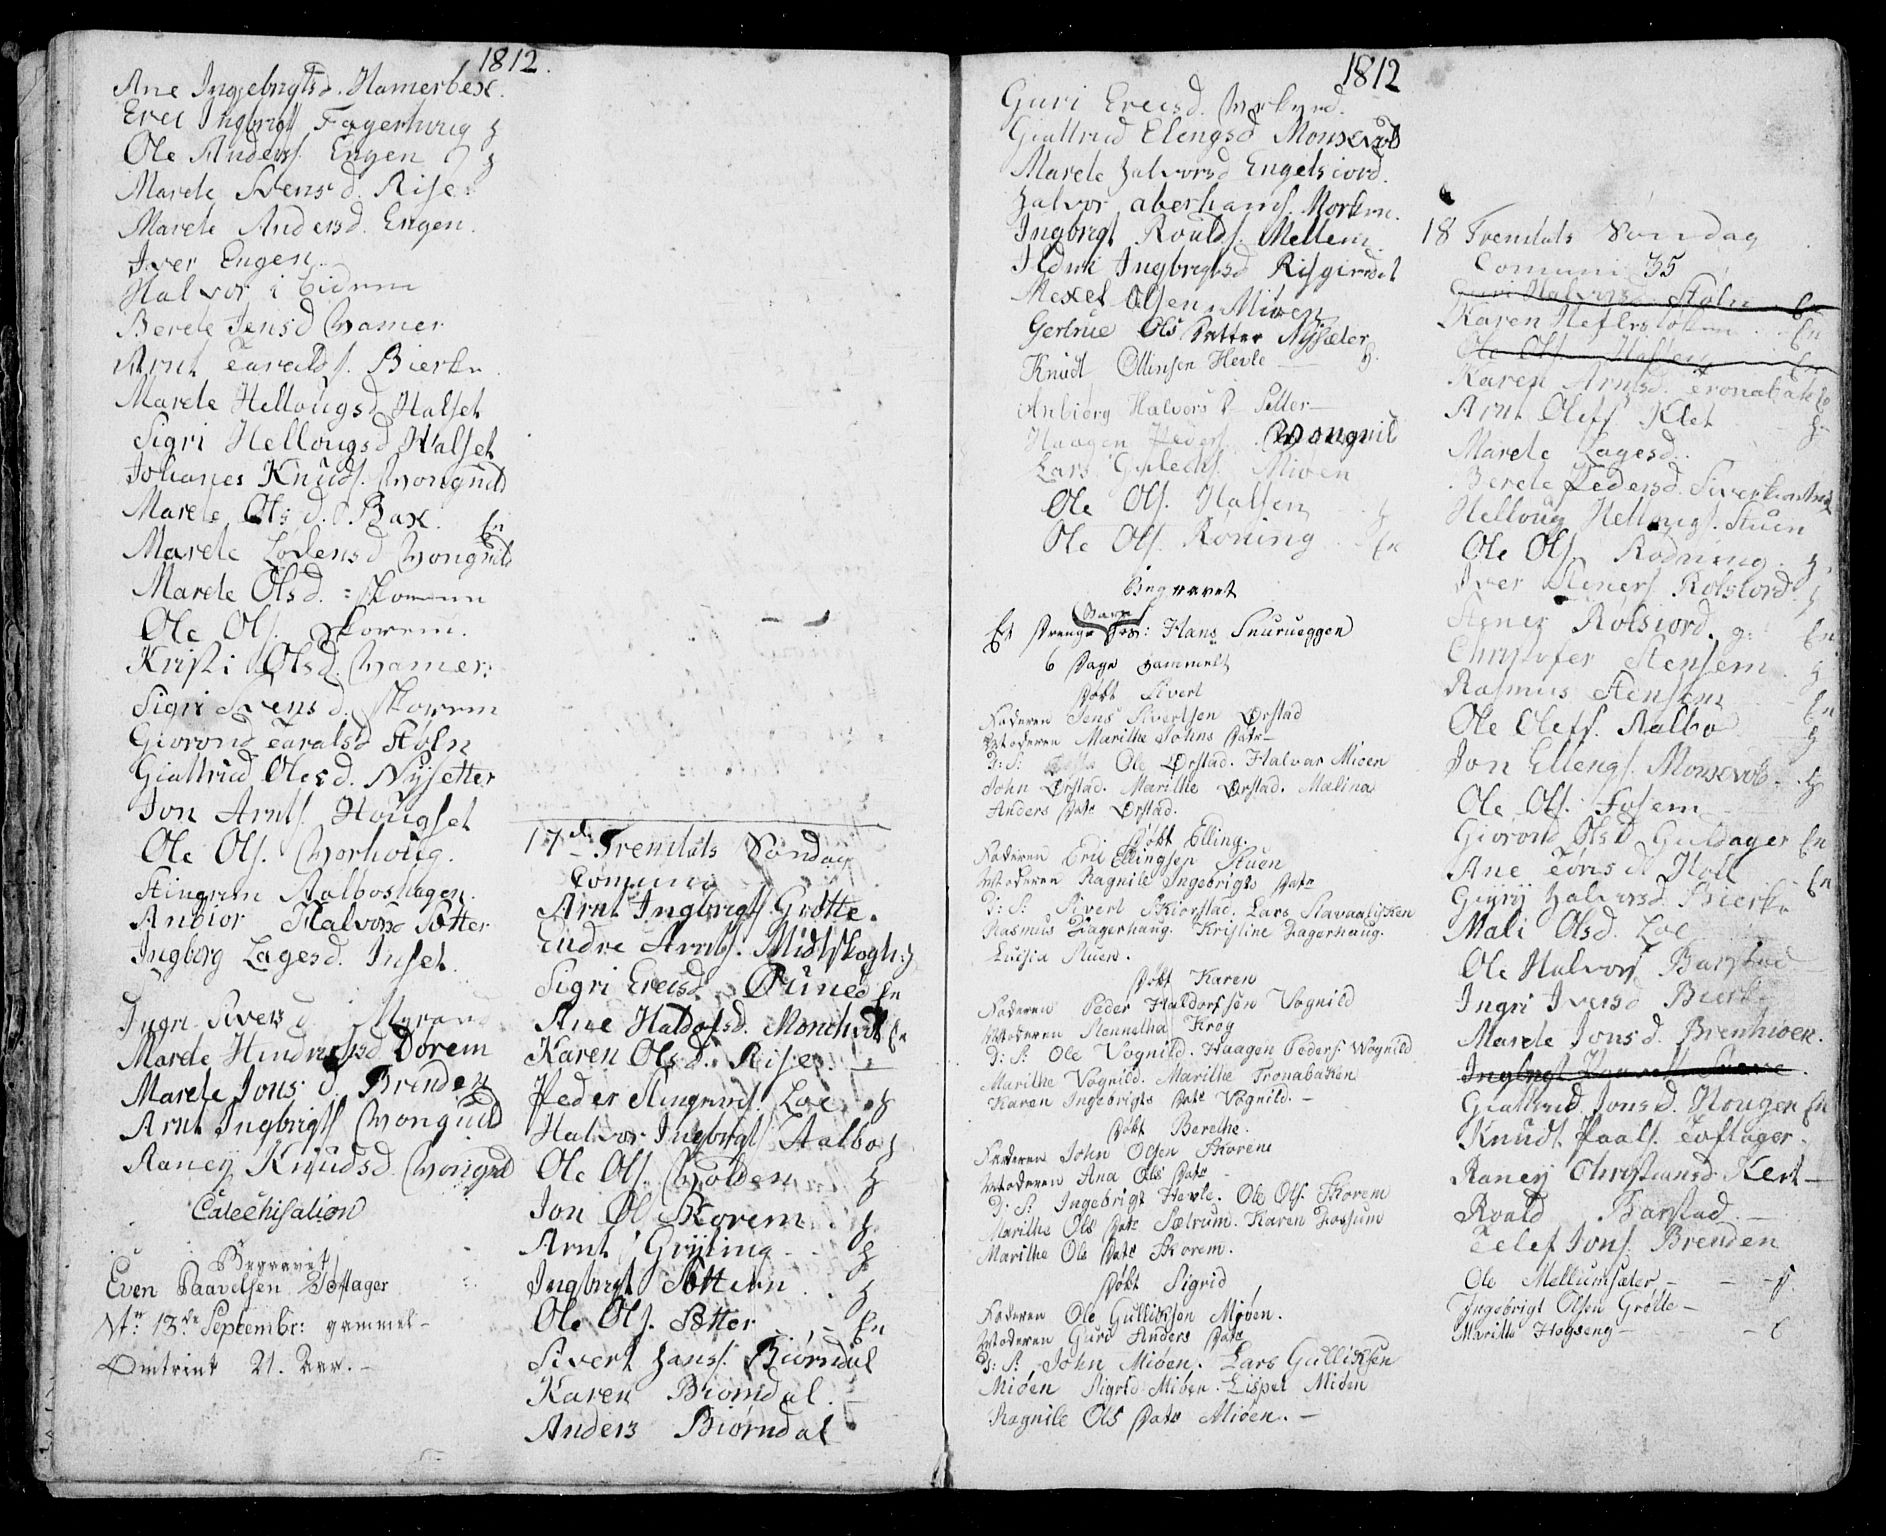 1812.
Ane Ingebrigtsd. Hamerbex.
Erei Ingbrigts Fagerhoug
Ole Anders. Engen
Marete Svensd. Rise
Marete Andersd. Engen.
Iver Engen.
Halvor i
Berete Jensd
Arnt Taralds. Bierke
Marete Hellougsd Halset
Sigri Hellougsd Halset
Johanes Knuds. Wongnild
Marete Olsd. Bax. En
Marete Lodensd Wongnild
Marete Olsd. Skorem
Ole Ols. Skorem.
Kristi Olsd. Hamer
Sigri Svensd. Skorem
Giorond Taralsd Stoln
Giattrud Olesd. Nysetter
Jon Arnts. Hougset
Ole Ols. Worhoug.
Stingrim Aalboshagen.
Anbior Halvorsd Sætter
Ingborg Lagesd. Inset.
Ingri Siversd
Marete Hindrichsd Dorem
Marete Jonsd. Brenden
Arnt Ingbrigts Wongnild
Raney Knudsd. Wongnild
Catechisation
Begravet
Even Paavelsen Toftager
Nt: 13de Septembr: gammel
Omtrint 21. Aar. –
17de Trenitats Søndag
Comunic
Arnt Ingbrigts. Grøtte.
Endre Arnts. Midtskogh:
Sigri Ereisd. Øunes En
Ane Haldosd. En
Karen Olsd. Rise
Peder Stingrims. Loe
Halvor Ingbrigts Aalbo
Ole Ols. Wolden
Jon Ol Skorem
Arnt Gryting
Ingbrigt Sættem
Ole Ols. Sætter En
Sivert Hans. Biørndal
Karen Biørndal.
Anders Biørndal
1812
Guri Ereisd.
Giattrud Elengsd Monsevol
Marete Halvorsd Engelsiord.
Halvor aberhams. Morken.
Ingbrigt Roalds. Mellem.
Ildri Ingbrigtsd Risgierdet
Mexel Olsen Miøen
Gertrue Ols Datter Nysæter
Knudt Ollinsen Hevle
Anbiørg Halvors D– Setter–
Haagen Peders. Wongnild
Lars Gulechs. Miøen
Ole Ols. Halsen
Ole Ols. Røning En
Begravet
Barn
Et Drenge Hans Snurueggen
6 Dage Gammelt
Døbt Sivert
Faderen Jens Sivertsen Ørstad
Moderen Marithe Johns Datr–
D: S: Ole Ørstad. Halvor Mioen
John Ørstad. Marithe Ørstad. Malina
Anders Datr Ørstad.
Døbt Elling.
Faderen Eric Ellingsen Stuen
Moderen Ragnile Ingebrigts Datr
D: S: Sivert Skiorstad. Lars Slavaalisken
Rasmus Fagerhaug. Kristine Fagerhaug.
Luisia Stuen.
Døbt Karen
Faderen Peder Haldorssen Vognild
Moderen Stennetha Krog
D: S: Ole Vognild. Haagen Peders. Wognild
Marithe Vognild. Marithe Tronabaken
Karen Ingebrigts Datr Vognild. –
Døbt Berethe.
Faderen John Olsen Skorem
Moderen Ana Ols Datr
D: S: Ingebrigt Hevle. Ole Ols. Skorem
Marithe Ols Datr Sætrum. Karen Fossum
Marithe Ols Datr Skorem.
Døbt Sigrid
Faderen Ole Gulliksen Mjøen.
Moderen Guri Anders Datr
D: S: John Miøen. Lars Gulliksen
Miøen Sigrid Miøen. Lispet Miøen
Ragnile Ols Datr Miøen. –
18 Trenitats Søndag
Comuni 35
Guri Halvorsd. Stoln En
Karen Hefleslokem En
Ole Ols. En
Karen Arntsd. Tronabakk
Arnt Olefs Klet
Marete Lagesd.
Berete Pedersd.
Helloug Hellougs. Stuen
Ole Ols Rodning
Iver Steners Rolsiord.
Stener Rolsiord. En
Christofer Stensem
Rasmus Stensem En
Ole Olefs. Aalbo
Jon Ellengs. Monsevol
Ole Ols. Fosem
Giorond Olsd. Guldager En
Ane Torisd Holl En
Gyry Halvorsd. Bierke
Mali Olsd. Loe
Ole Halvors Barstad
Ingri Iversd Bierke
Marete Jonsd. Brenhioen.
Ingbrigt
Giattrud Jonsd. Hougen En
Knudt Paals. Toftager.
Raney Christiansd. Klet –
Roald Barstad. –
Telef Jons. Brenden
Ole Mellumsæter –
Ingebrigt Olsen Grøtte –
Maritte Hogseng –